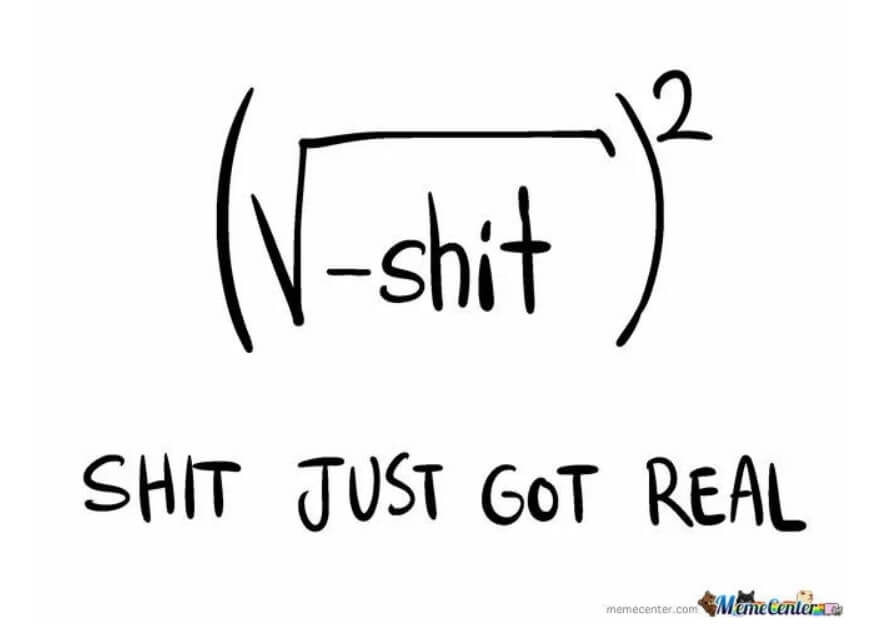 (√-shit)²
SHIT JUST GOT REAL
memecenter.com MemeCenter